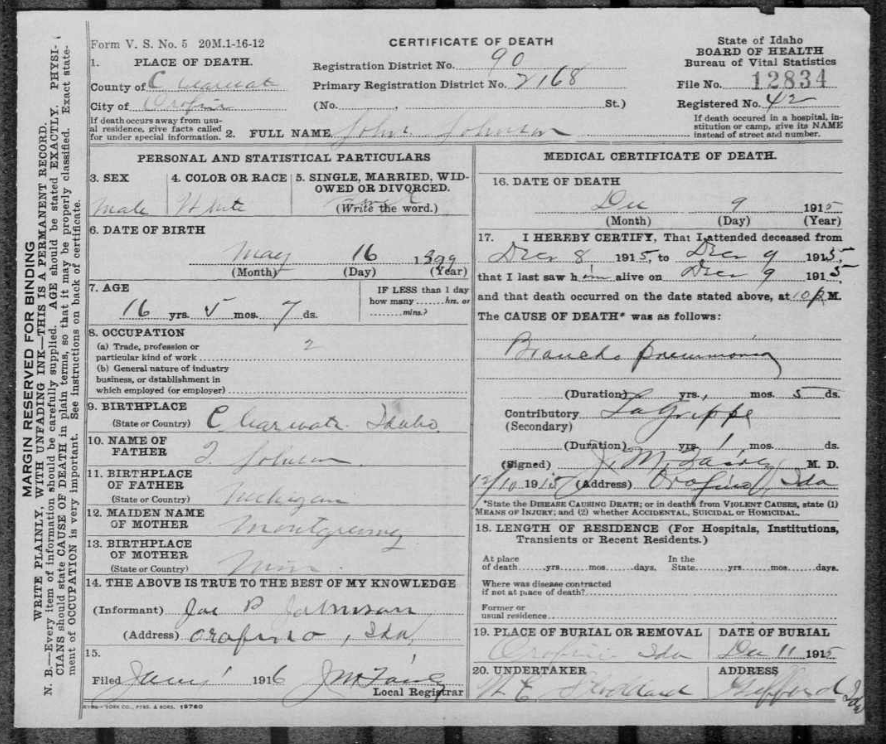 Form V. S. No. 5 20M.1-16-12
CERTIFICATE OF DEATH
State of Idaho
BOARD OF HEALTH
Bureau of Vital Statistics
1. PLACE OF DEATH.
Registration District No. 90
County of Clearwate
Primary Registration District No. 2168
File No. 12834
City of Orofino
(No. , St.)
Registered No. 42
If death occurs away from usual residence, give facts called for under special information.
2. FULL NAME John Johnson
If death occured in a hospital, institution or camp, give its NAME instead of street and number.
PERSONAL AND STATISTICAL PARTICULARS
3. SEX
male
4. COLOR OR RACE
White
5. SINGLE, MARRIED, WIDOWED OR DIVORCED.
(Write the word.)
6. DATE OF BIRTH
May 16 1899
(Month) (Day) (Year)
7. AGE
16 yrs. 5 mos. 7 ds.
IF LESS than 1 day how many ...... hrs. or ...... mins.?
8. OCCUPATION
(a) Trade, profession or particular kind of work
(b) General nature of industry business, or establishment in which employed (or employer)
9. BIRTHPLACE
(State or Country) Clearwate Idaho
10. NAME OF FATHER
Johnson
11. BIRTHPLACE OF FATHER
(State or Country) Michigan
12. MAIDEN NAME OF MOTHER
Montgremy
13. BIRTHPLACE OF MOTHER
(State or Country) Minn.
14. THE ABOVE IS TRUE TO THE BEST OF MY KNOWLEDGE
(Informant) Joe P Johnson
(Address) Orofino, Ida
15.
Filed Jany 1 1916
Local Registrar
MEDICAL CERTIFICATE OF DEATH.
16. DATE OF DEATH
Dec 9 1915
(Month) (Day) (Year)
17. I HEREBY CERTIFY, That I attended deceased from
Decr 8 1915 to Decr 9 1915
that I last saw him alive on Decr 9 1915
and that death occurred on the date stated above, at 10 P M.
The CAUSE OF DEATH* was as follows:
Broncho pneumonia
(Duration) yrs. mos. 5 ds.
Contributory LaGrippe
(Secondary)
(Duration) yrs. 1 mos. ds.
(Signed) J. M. M. D.
12/10 1915 (Address) Orofino, Ida
*State the DISEASE CAUSING DEATH; or in deaths from VIOLENT CAUSES, state (1) MEANS OF INJURY; and (2) whether ACCIDENTAL, SUICIDAL or HOMICIDAL.
18. LENGTH OF RESIDENCE (For Hospitals, Institutions, Transients or Recent Residents.)
At place of death......yrs......mos......days. In the State......yrs......mos......days.
Where was disease contracted if not at place of death?
Former or usual residence
19. PLACE OF BURIAL OR REMOVAL
Orofino Ida
DATE OF BURIAL
Dec 11 1915
20. UNDERTAKER
Stoddard
ADDRESS
Gifford Ida
MARGIN RESERVED FOR BINDING
WRITE PLAINLY, WITH UNFADING INK—THIS IS A PERMANENT RECORD.
N. B.—Every item of information should be carefully supplied. AGE should be stated EXACTLY. PHYSICIANS should state CAUSE OF DEATH in plain terms, so that it may be properly classified. Exact statement of OCCUPATION is very important. See instructions on back of certificate.